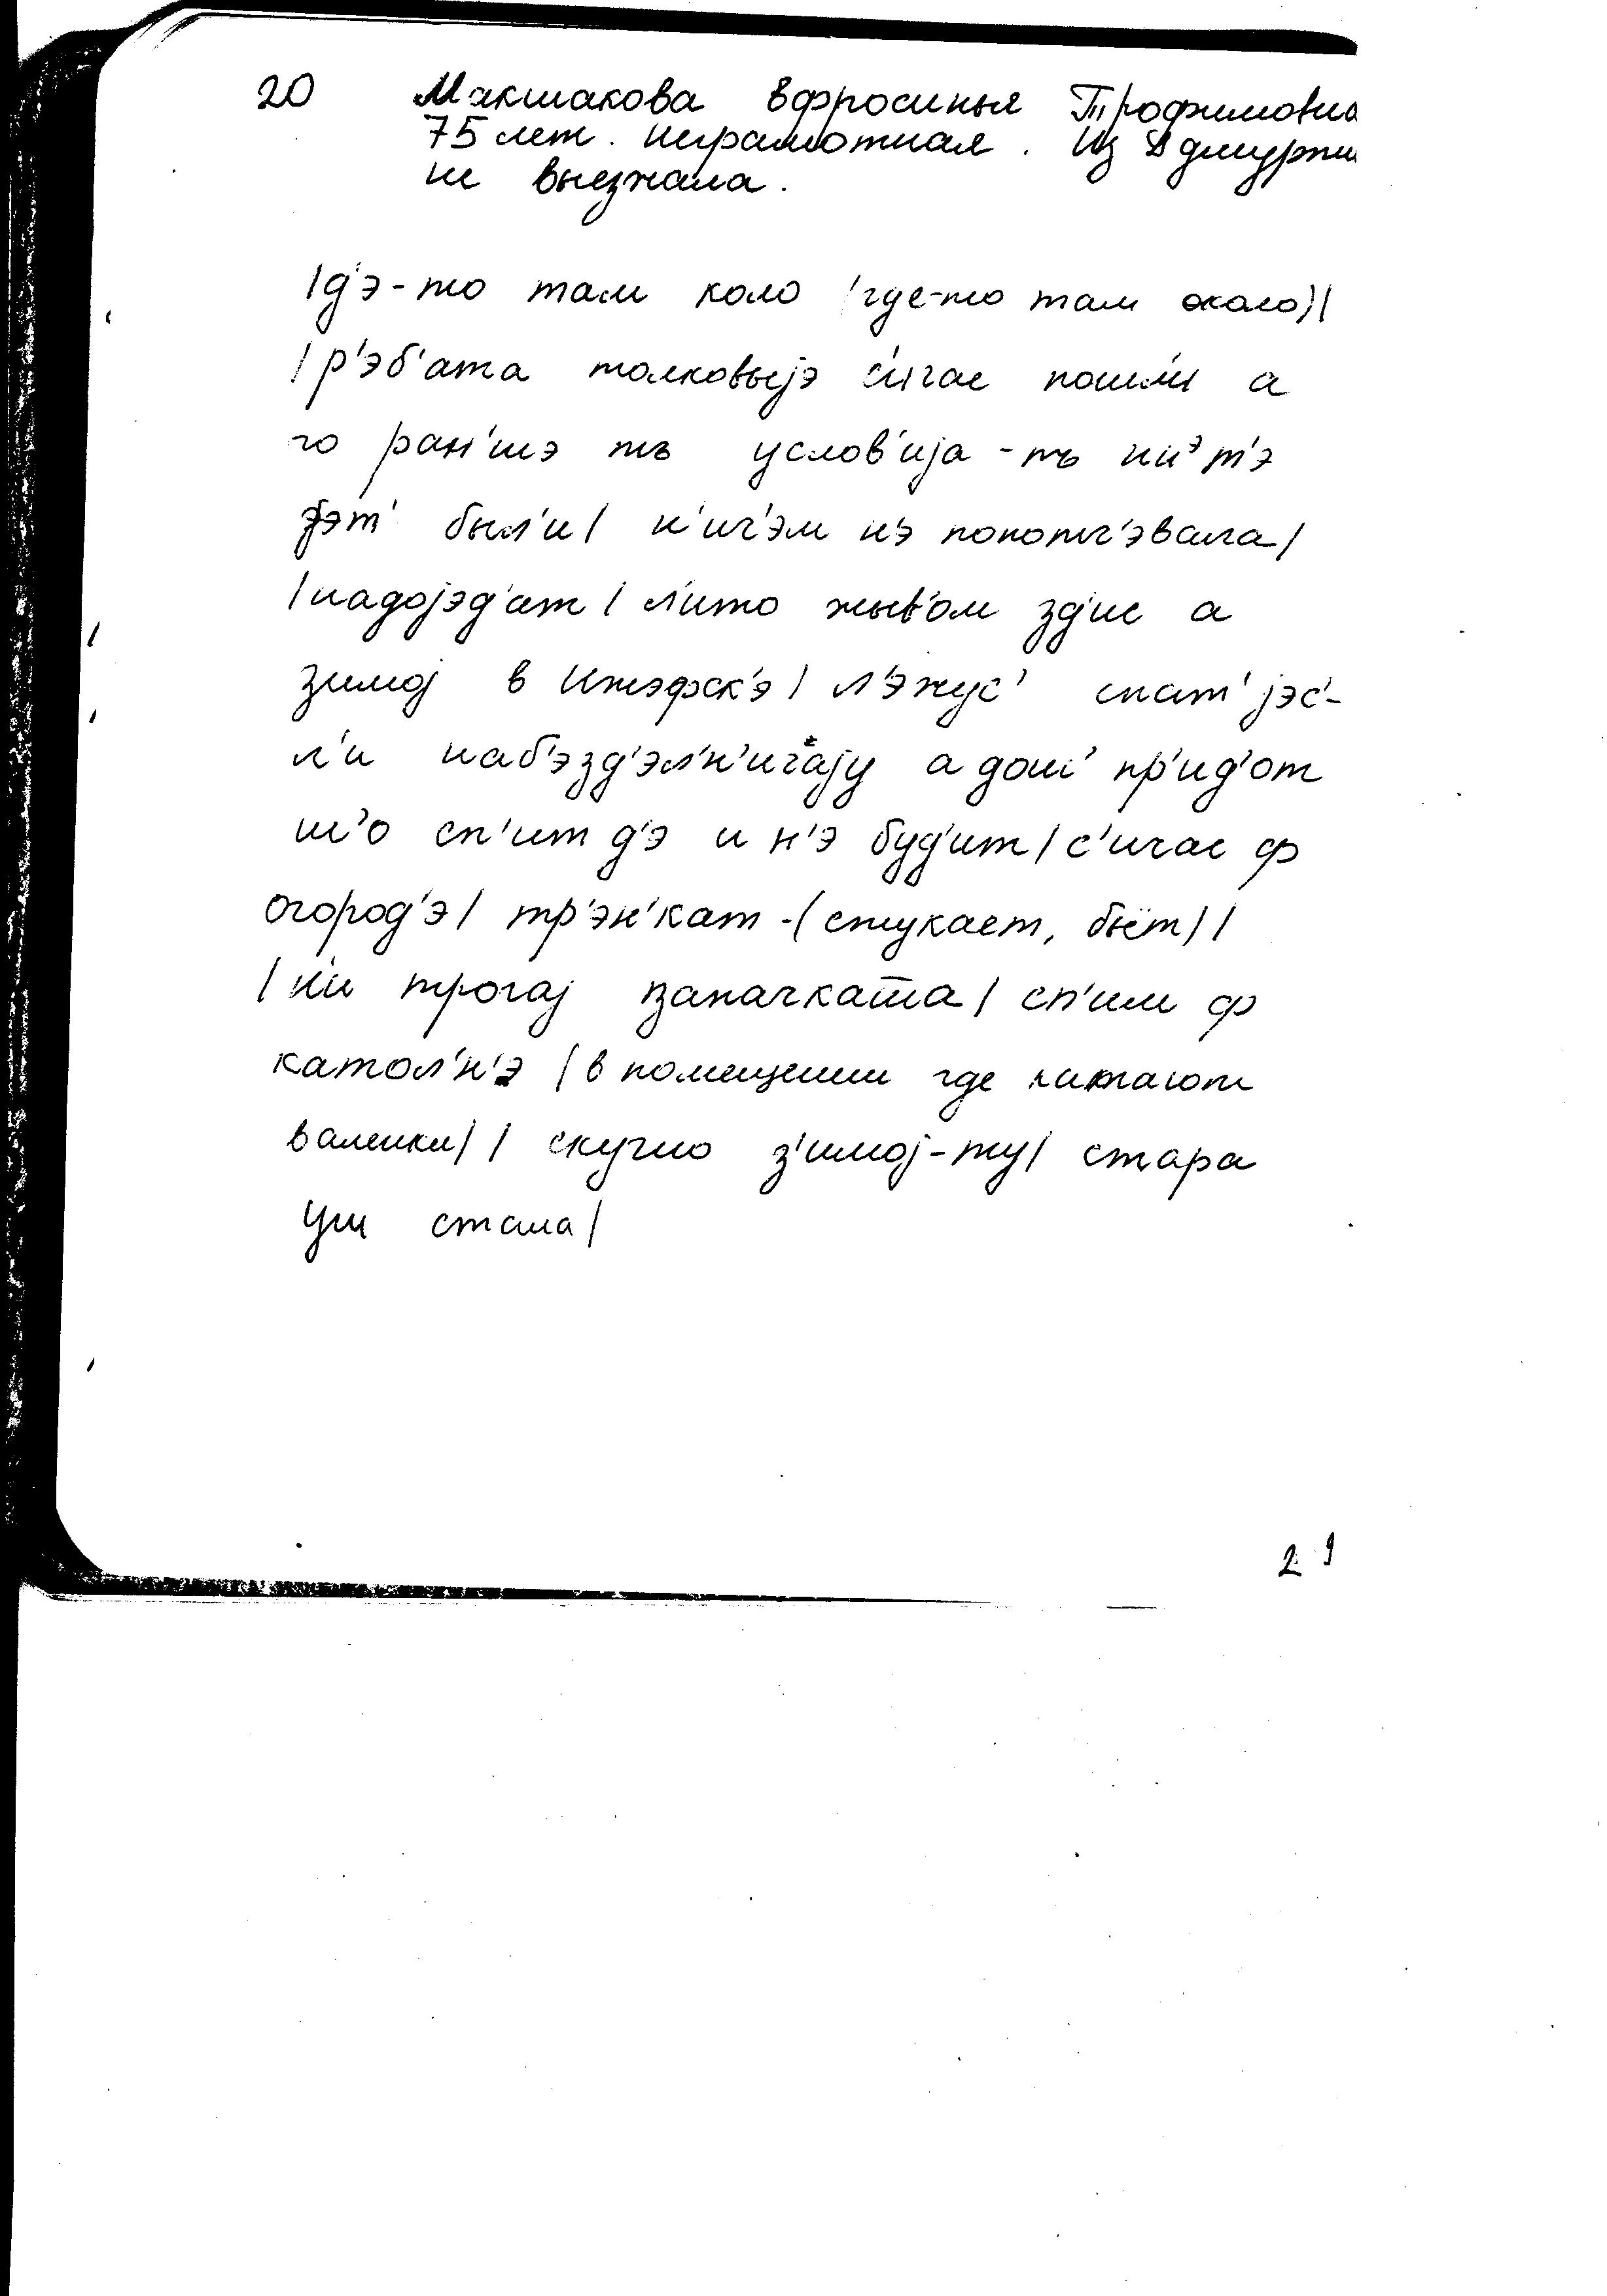 20 Макшакова Ефросинья Трофимовна
75 лет. Неграмотная. Из Удмуртии
не выезжала.
|д'э-то там коло (где-то там около)|
|р'эб'ата толковыjэ с'ичас пошл'и а
то ран'шэ тъ услов'иjа-тъ н'иэ т'э
былʼи| н'ич'эм н'э попотч'эвала|
|надоjэд'ат| л'ито жыв'ом зд'ис а
зимоj в Ижэфск'э| л'эжус' спат' jэс'-
л'и наб'эзд'эл'н'ичаjу а дош' пр'ид'от
ш'о сп'ит д'э и н'э буд'ит| с'ичас ф
огород'э| тр'эн'кат -(стукает, бьёт)|
|н'и трогаj запачката| сп'им ф
катол'н'э (в помещении где катают
валенки)| скучно з'имоj-ту| стара
уш стала|
21